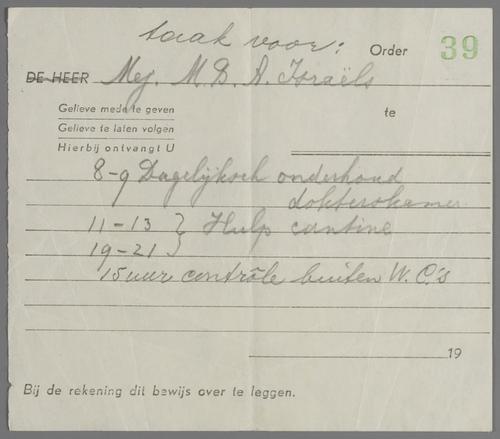 taak voor:
Order 39
DE HEER Mej. M. D. A. Israëls
Gelieve mede te geven
te
Gelieve te laten volgen
Hierbij ontvangt U
8-9 Dagelijksch onderhoud
dokterskamer
11-13 } Hulp cantine
19-21 }
15 uur contrôle buiten W.C.'s
19
Bij de rekening dit bewijs over te leggen.